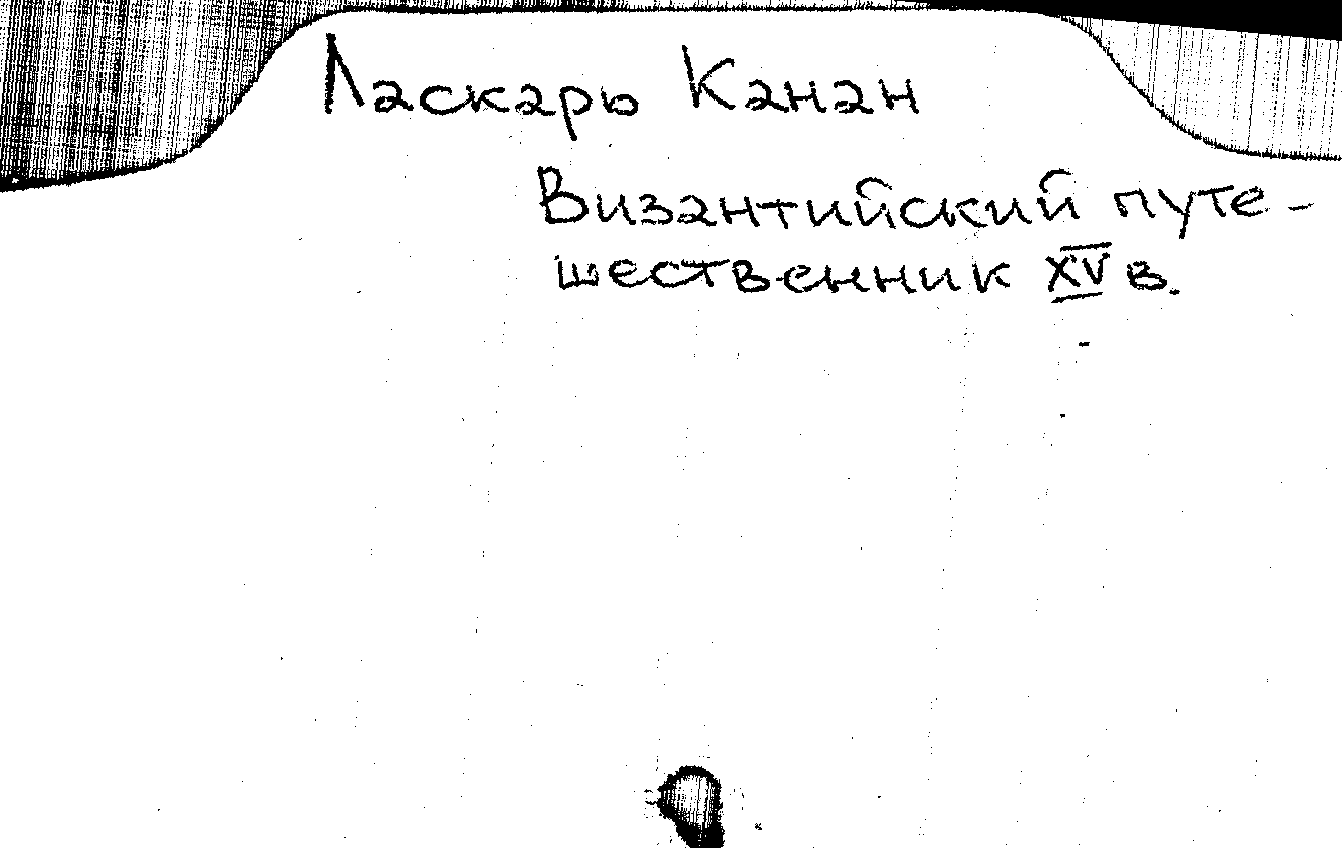 Ласкарь Канан
Византийский путе-
шественник XV в.